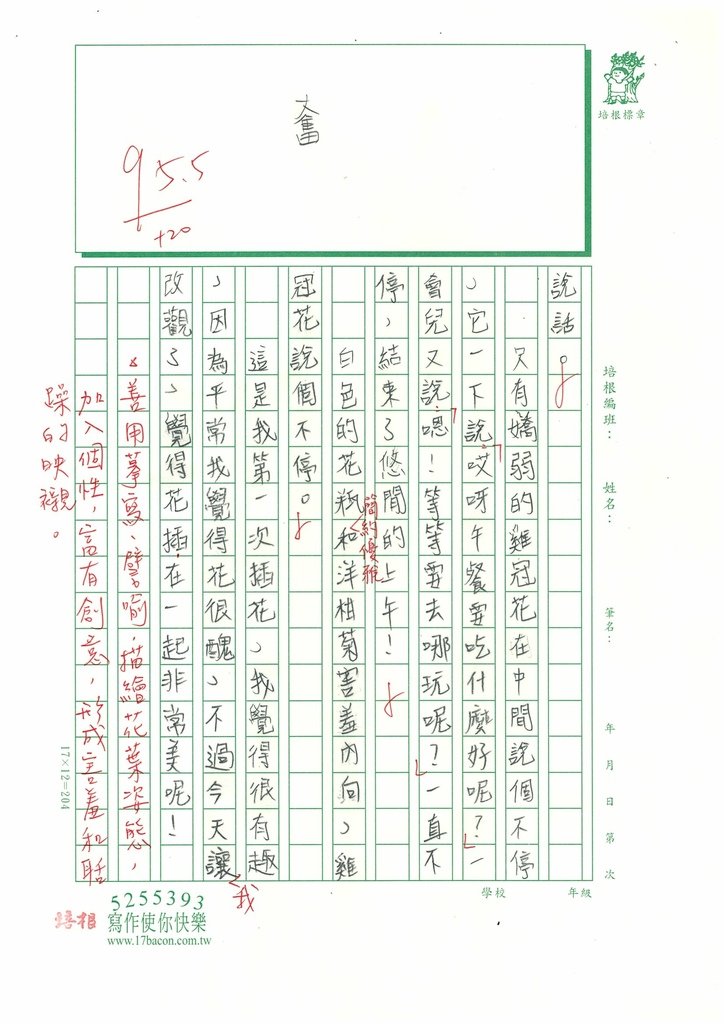 奮
95.5
+20
培根標章
培根編班：
姓名：
筆名：
年 月 日 第 次
學校
年級
說話。
只有嬌弱的雞冠花在中間說個不停
，它一下說：「哎呀午餐要吃什麼好呢？」一
會兒又說：「嗯！等等要去哪玩呢？」一直不
停，結束了悠閒的上午！
簡約優雅
白色的花瓶和洋桔菊害羞內向，雞
冠花說個不停。
這是我第一次插花，我覺得很有趣
，因為平常我覺得花很醜，不過今天讓
我
改觀了，覺得花插在一起非常美呢！
善用摹寫、譬喻，描繪花葉姿態，
加入個性，富有創意，形成害羞和聒
躁的映襯。
17×12=204
5255393
培根 寫作使你快樂
www.17bacon.com.tw